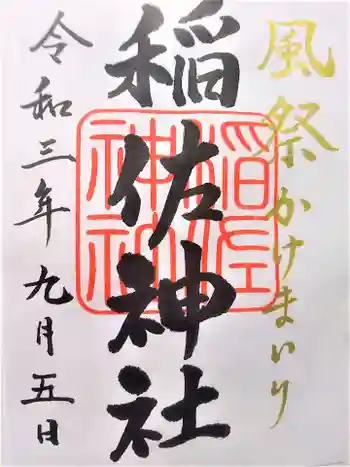 風祭かけまいり
稲佐神社
稲佐
神社
令和三年九月五日